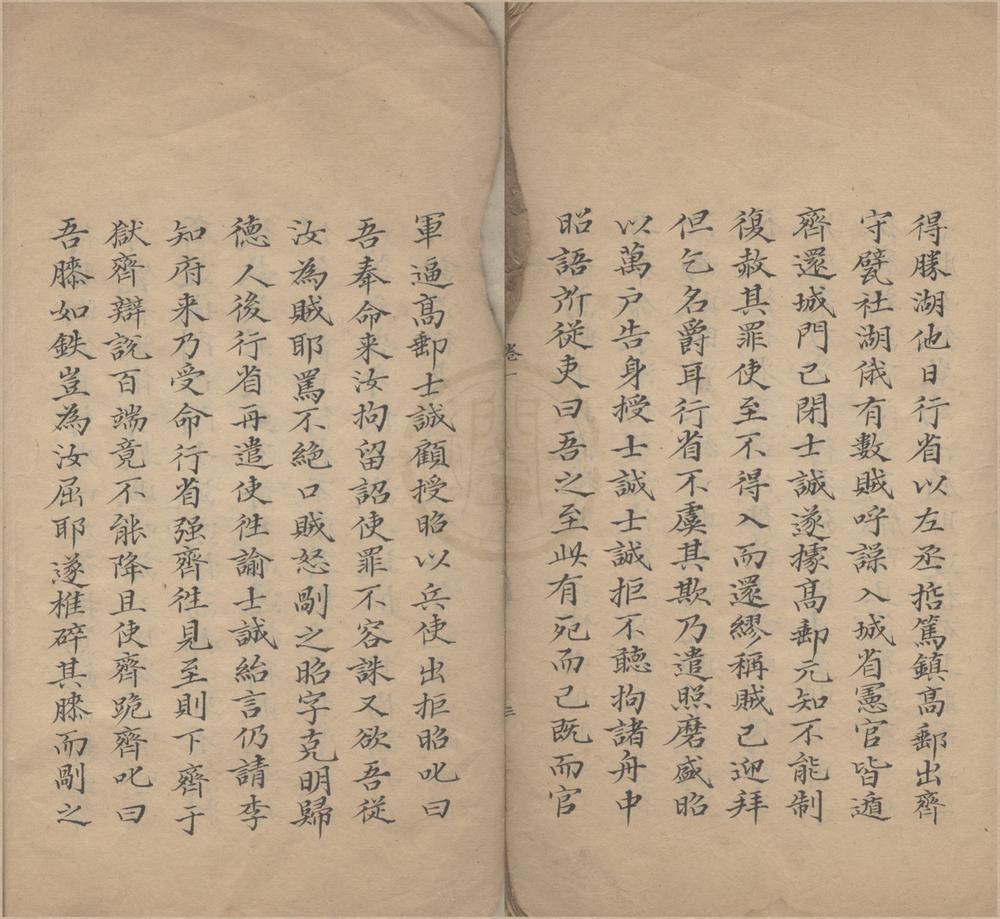 得勝湖他日行省以左丞捁篤鎮髙郵出齊
守甓社湖俄有數賊呼譟入城省憲官皆遁
齊還城門已閉士誠遂據髙郵元知不能制
復赦其罪使至不得入而還繆稱賊已迎拜
但乞名爵耳行省不虞其欺乃遣照磨盛昭
以萬户告身授士誠士誠拒不聽拘諸舟中
昭語所從吏曰吾之至此有死而已既而官
卷一
三
軍逼髙郵士誠顧授昭以兵使出拒昭叱曰
吾奉命来汝拘留詔使罪不容誅又欲吾従
汝為賊耶罵不絶口賊怒剮之昭字克明歸
德人後行省再遣使徃諭士誠紿言仍請李
知府来乃受命行省强齊徃見至則下齊于
獄齊辯説百端竟不能降且使齊跪齊叱曰
吾膝如鉄豈為汝屈耶遂椎碎其膝而剮之